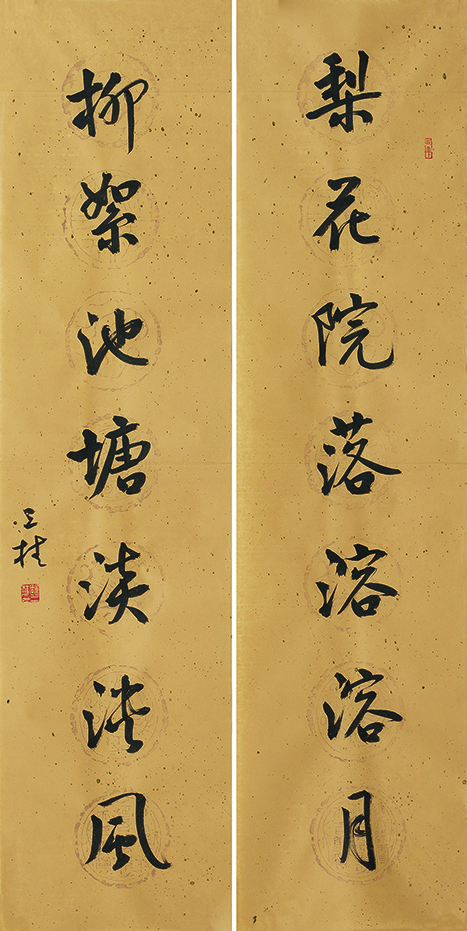 梨花院落溶溶月
柳絮池塘淡淡風